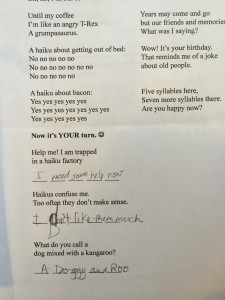 Until my coffee
I'm like an angry T-Rex
A grumpasaurus.
A haiku about getting out of bed:
No no no no no
No no no no no no no
No no no no no
A haiku about bacon:
Yes yes yes yes yes
Yes yes yes yes yes yes yes
Yes yes yes yes yes
Years may come and go
but our friends and memories
What was I saying?
Wow! It's your birthday.
That reminds me of a joke
about old people.
Five syllables here,
Seven more syllables there.
Are you happy now?
Now it's YOUR turn. ☺
Help me! I am trapped
in a haiku factory
I need some help now
Haikus confuse me.
Too often they don't make sense.
I don't like them much
What do you call a
dog mixed with a kangaroo?
A Doggy and Roo